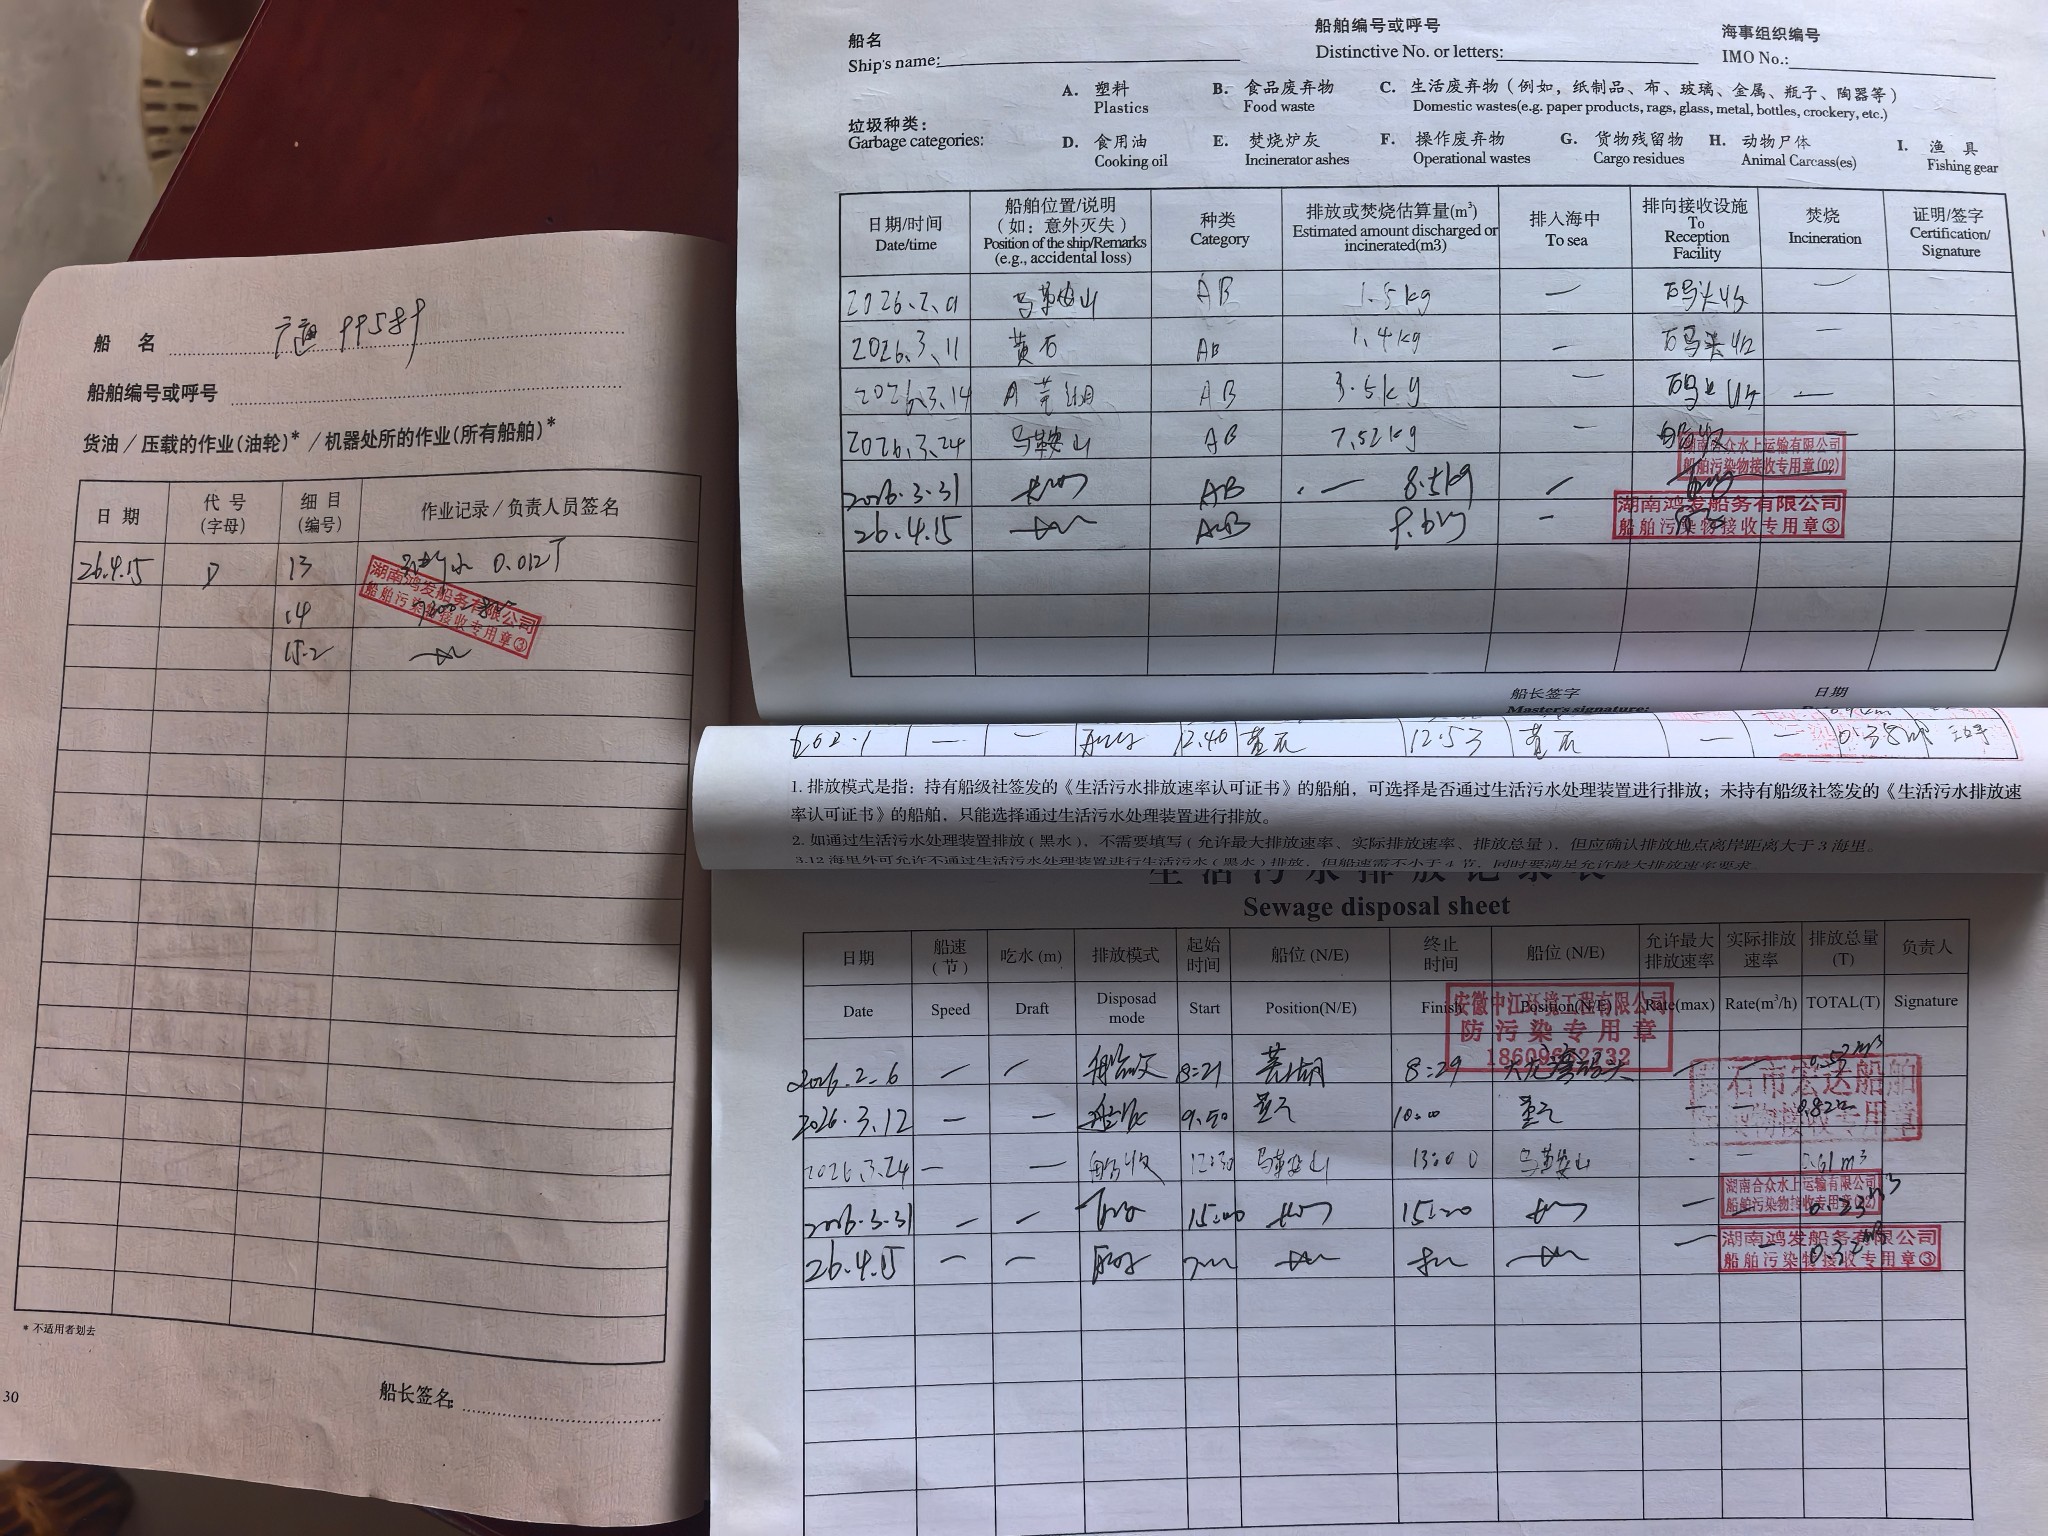 船 名
船舶编号或呼号
货油／压载的作业(油轮)*／机器处所的作业(所有船舶)*
日 期 代 号 (字母) 细 目 (编号) 作业记录／负责人员签名
26.4.15 D 13 0.012T
14
15.2
湖南鸿发船务有限公司
船舶污染物接收专用章③
* 不适用者划去
30
船长签名
船名
Ship's name:
船舶编号或呼号
Distinctive No. or letters:
海事组织编号
IMO No.:
垃圾种类：
Garbage categories:
A. 塑料 B. 食品废弃物 C. 生活废弃物（例如，纸制品、布、玻璃、金属、瓶子、陶器等）
Plastics Food waste Domestic wastes(e.g. paper products, rags, glass, metal, bottles, crockery, etc.)
D. 食用油 E. 焚烧炉灰 F. 操作废弃物 G. 货物残留物 H. 动物尸体 I. 渔 具
Cooking oil Incinerator ashes Operational wastes Cargo residues Animal Carcass(es) Fishing gear
日期/时间 船舶位置/说明 种类 排放或焚烧估算量(m³) 排入海中 排向接收设施 焚烧 证明/签字
（如：意外灭失）
Date/time Position of the ship/Remarks (e.g., accidental loss) Category Estimated amount discharged or incinerated(m3) To sea To Reception Facility Incineration Certification/ Signature
马鞍山 AB 1.5kg —  —
2026.3.11 黄石 AB 1.4kg — —
2026.3.14 AB 3.5kg — —
2026.3.24 马鞍山 AB 7.52kg — 船收 —
2026.3.31 AB — 8.5kg —
26.4.15 AB —
湖南合众水上运输有限公司
船舶污染物接收专用章(02)
湖南鸿发船务有限公司
船舶污染物接收专用章③
船长签字 日期
Master's signature:
— — 12.40 黄石 12.53 黄石 — — 0.38
1. 排放模式是指：持有船级社签发的《生活污水排放速率认可证书》的船舶，可选择是否通过生活污水处理装置进行排放；未持有船级社签发的《生活污水排放速
率认可证书》的船舶，只能选择通过生活污水处理装置进行排放。
2. 如通过生活污水处理装置排放（黑水），不需要填写（允许最大排放速率、实际排放速率、排放总量），但应确认排放地点离岸距离大于3海里。
3.12海里外可允许不通过生活污水处理装置进行生活污水（黑水）排放，但船速需不小于4节，同时要满足允许最大排放速率要求。
生活污水排放记录表
Sewage disposal sheet
日期 船速（节） 吃水 (m) 排放模式 起始时间 船位 (N/E) 终止时间 船位 (N/E) 允许最大排放速率 实际排放速率 排放总量(T) 负责人
Date Speed Draft Disposad mode Start Position(N/E) Finish Position(N/E) Rate(max) Rate(m³/h) TOTAL(T) Signature
安徽中江环境工程有限公司
防污染专用章
2026.2.6 — — 船收 8:21 芜湖 8:29 — —
2026.3.12 — — 船收 9.50 10:00 — —
2026.3.24 — — 船收 12:30 马鞍山 13:00 马鞍山 - —
2026.3.31 — — 15:00 15:20 — —
26.4.15 — — — —
石市宏达船舶
湖南合众水上运输有限公司
船舶污染物接收专用章(02)
湖南鸿发船务有限公司
船舶污染物接收专用章③